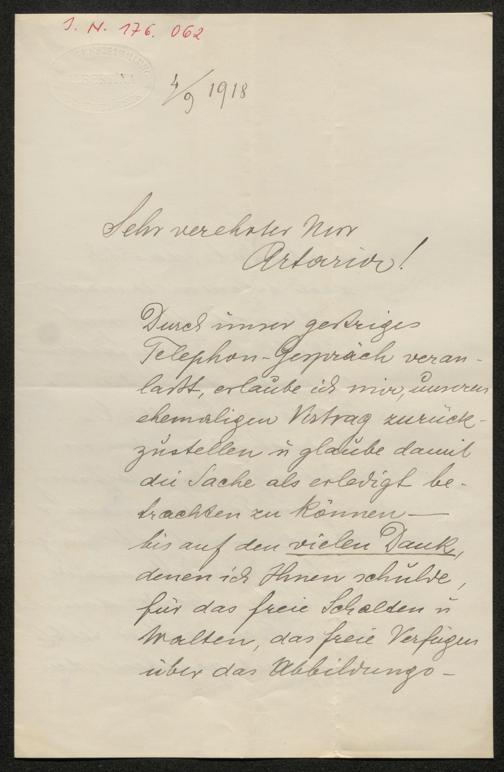 J. N. 176. 062
4/9 1918
Sehr verehrter Herr
Artaria!
Durch unser gestriges
Telephon-Gespräch veran-
laßt, erlaube ich mir, unseren
ehemaligen Vertrag zurück-
zustellen u glaube damit
die Sache als erledigt be-
trachten zu können —
bis auf den vielen Dank,
denen ich Ihnen schulde,
für das freie Schalten u
Walten, das freie Verfügen
über das Abbildungs-